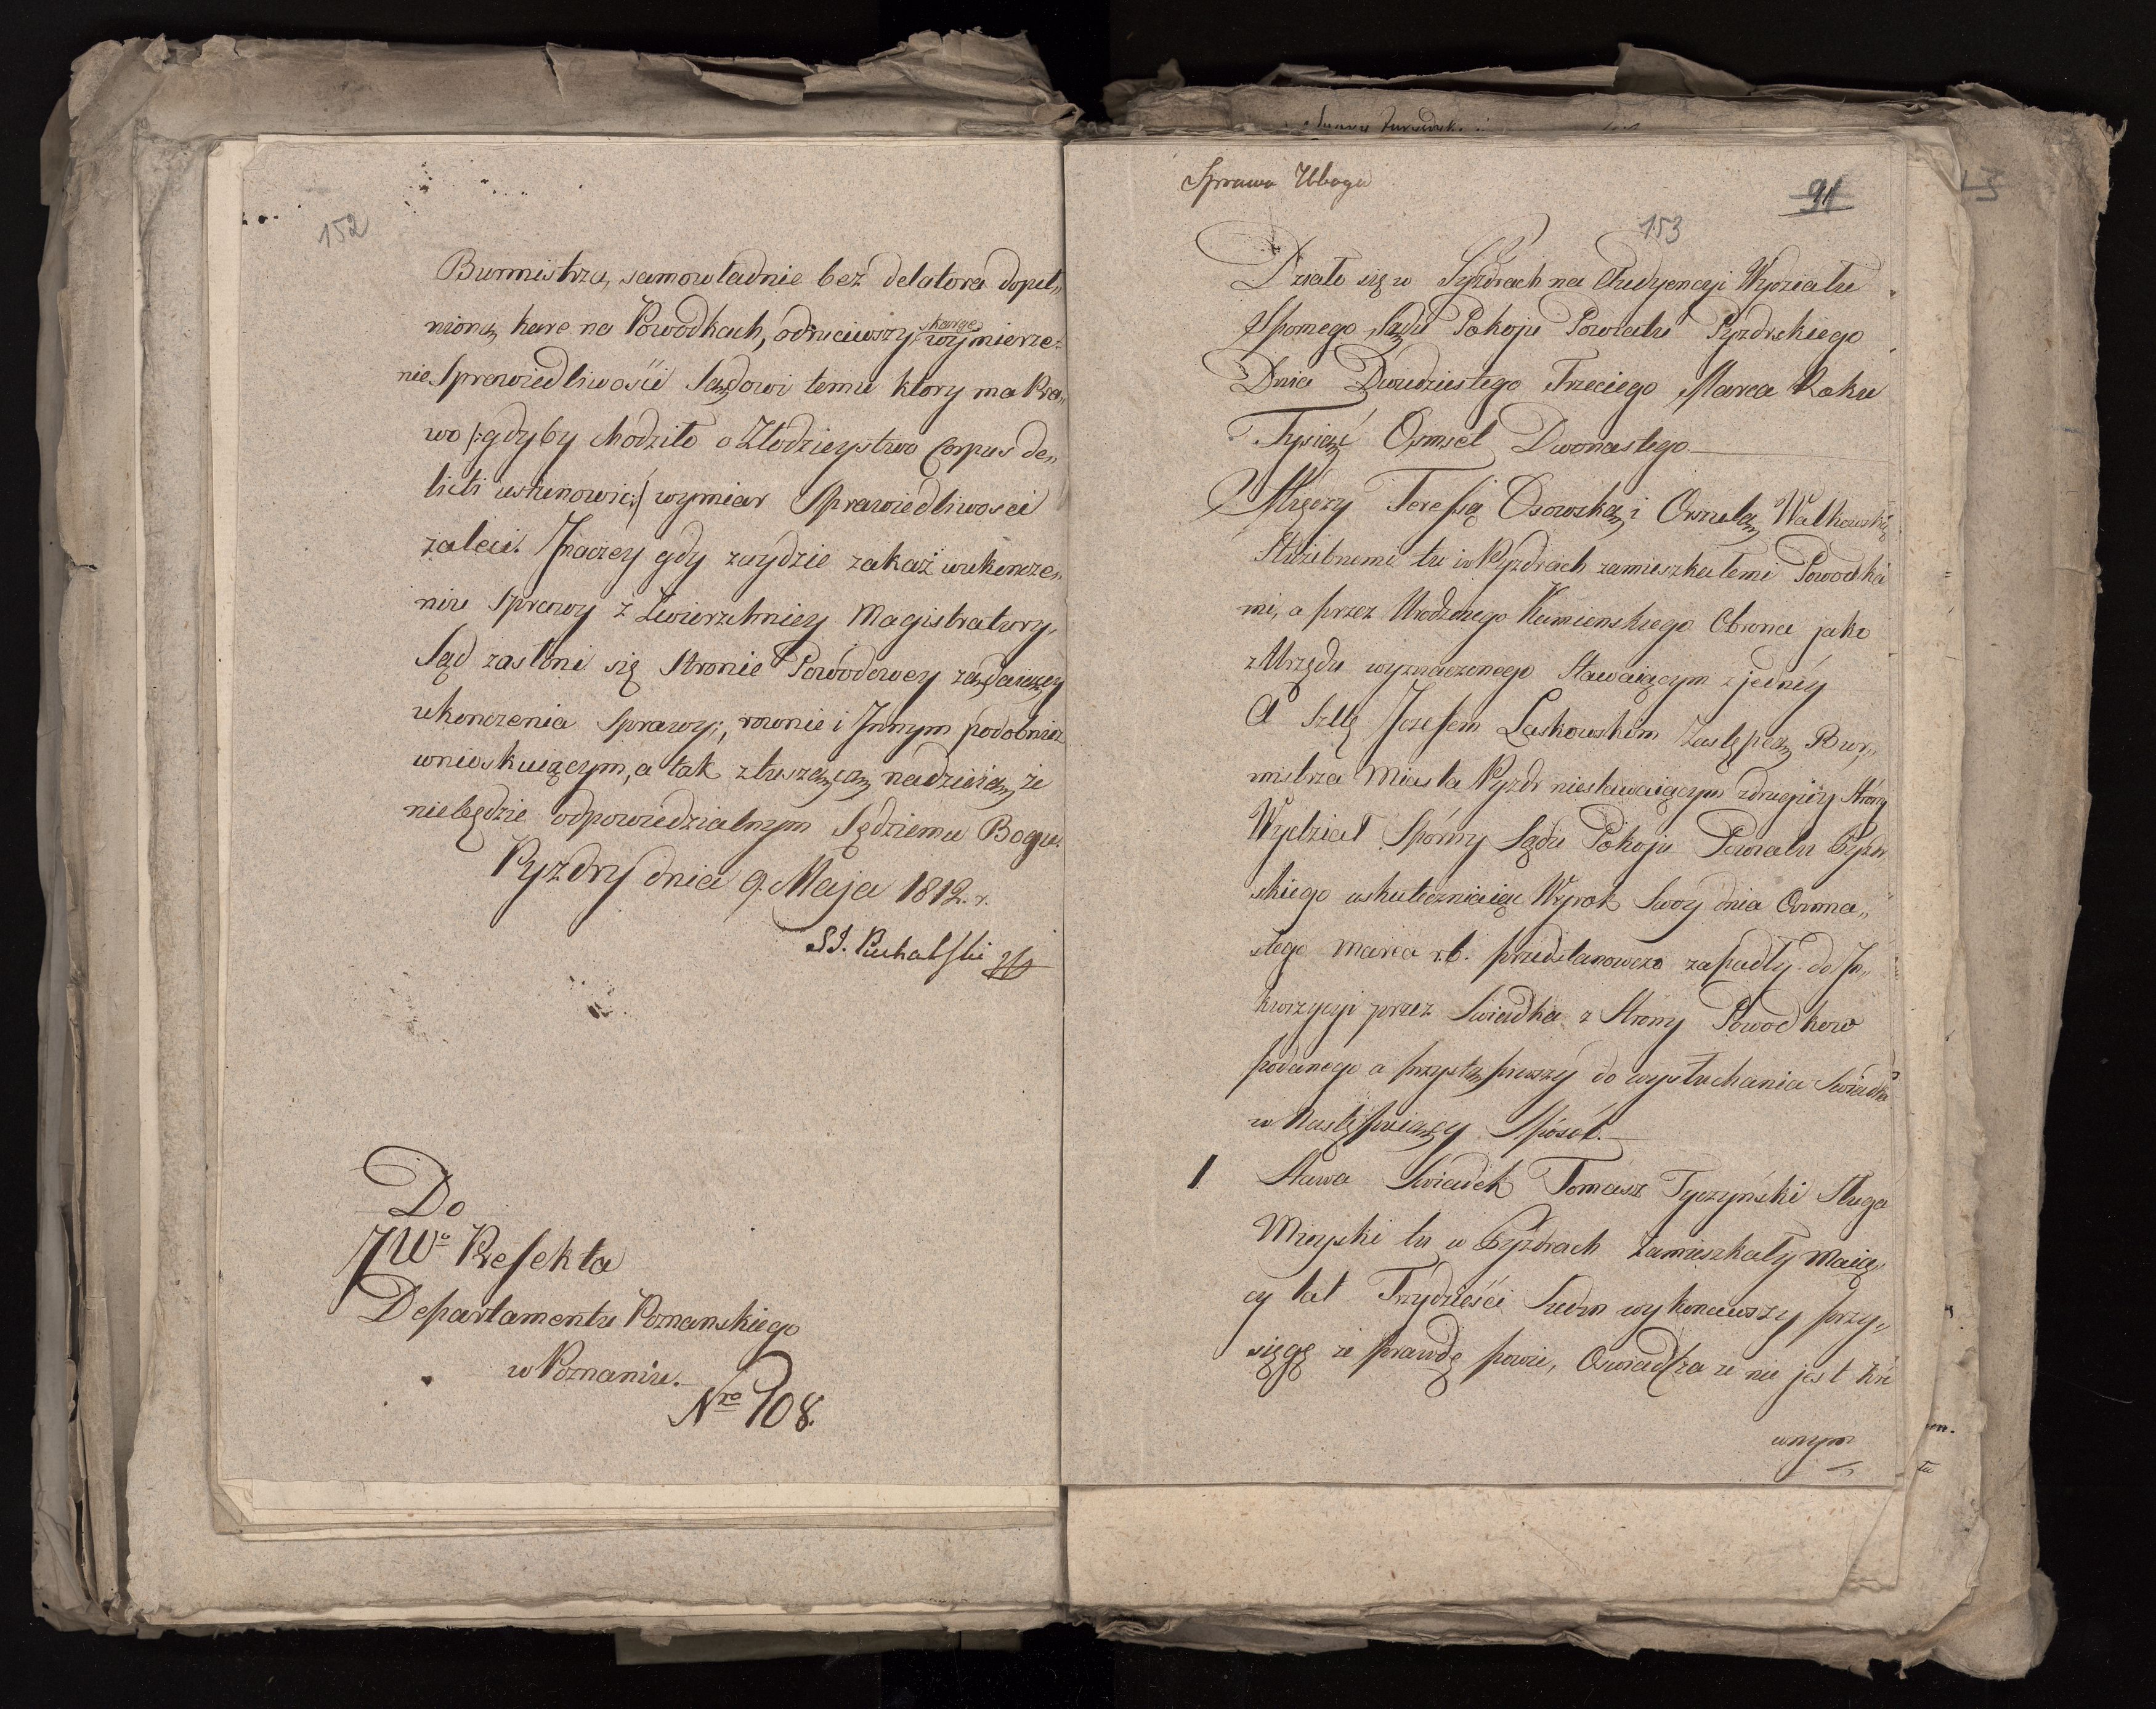 152
Burmistrza, samowładnie bez delatora dopeł„
nioną karę na Powodkach, odrzuciwszy skargę wymierze„
nie Sprawiedliwości Sądowi temu ktory ma Pra„
wo /:gdyby chodziło o Złodzieystwo Corpus de„
licti ustanowić:/ wymiar Sprawiedliwosci
zaleci. Jnaczey gdy zaydzie zakaz wukoncze„
niu Sprawy z Zwierzchniey Magistratury,
Sąd zasłoni się Stronie Powodowey ządaiącey
ukonczenia Sprawy; rownie i Jnnym podobnież
wnioskuiącym, a tak ztuszącą nadzieią, że
niebędzie odpowiedzialnym Sędziemu Bogu.
Pyzdry dnia 9. Maja 1812. r.
S.J. Puchalski
Do
JWo Prefekta
Departamentu Poznanskiego
w Poznaniu.
Nro 908.
Sprawa Uboga
91
153
Działo się w Pyzdrach na Audyencyi Wydziału
Spornego Sądu Pokoju Powiatu Pyzdrskiego
Dnia Dwudziestego Trzeciego Marca Roku
Tysiąć Osmset Dwonastego
Między Teresią Osowską i Orszulą Walkowską
Służebnemi tu w Pyzdrach zamieszkałemi Powodka
mi, a przez Urodzonego Kamienskiego Obronce jako
z Urzędu wyznaczonego Stawaiącym z jedney
A Szlę Jozefem Laskowskim Zastępcą Bur„
mistrza Miasta Pyzdr niestawaiącym zdrugiey Strony
Wydział Sporny Sądu Pokoju Powiatu Pyzdr
skiego uskuteczniaiąc Wyrok Swoy dnia Osmna„
stego Marca r.b. przedstanowczo zapadły do Jn„
kwizycyi przez Swiadka z Strony Powodkow
podanego a przystąpiwszy do wysłuchania Swiadka
w Następuiący Sposob.
1. Stawa Swiadek Tomasz Tyczyński Sługa
Mieyski tu w Pyzdrach Zamieszkały maią„
cy lat Trzydzieści Siedm wykonawszy przy„
sięgę że prawdę powie, Oswiadcza ze nie jest kre
wnym